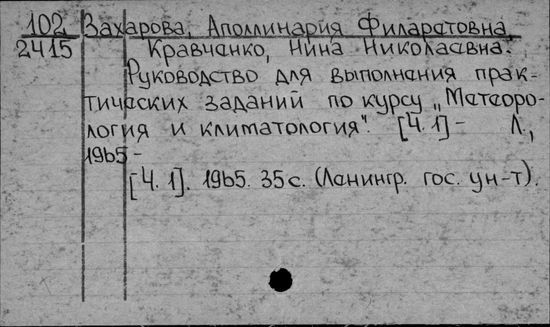 102 Захарова, Аполлинария Филаретовна,
2415 Кравченко, Нина Николаевна.
Руководство для выполнения прак-
тических заданий по курсу „Метеоро-
логия и климатология". [Ч. 1] - Л.,
1965 -
[Ч. 1]. 1965. 35 с. (Ленингр. гос. ун-т).